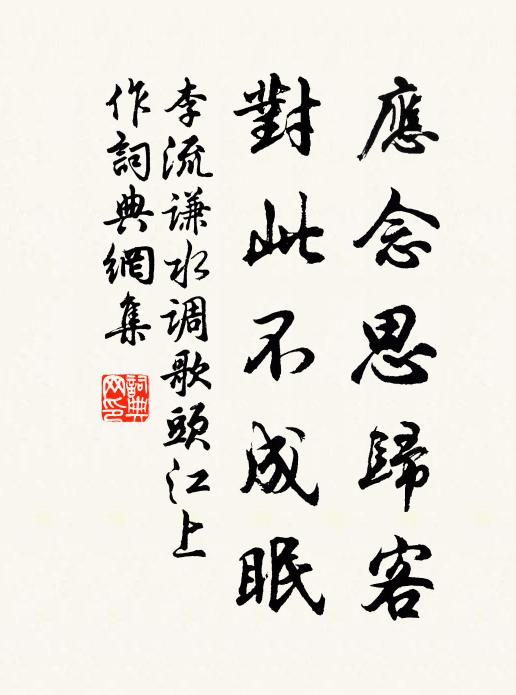 應念思歸客
對此不成眠
李流謙水调歌頭江上
作詞典網集
詞典
网印